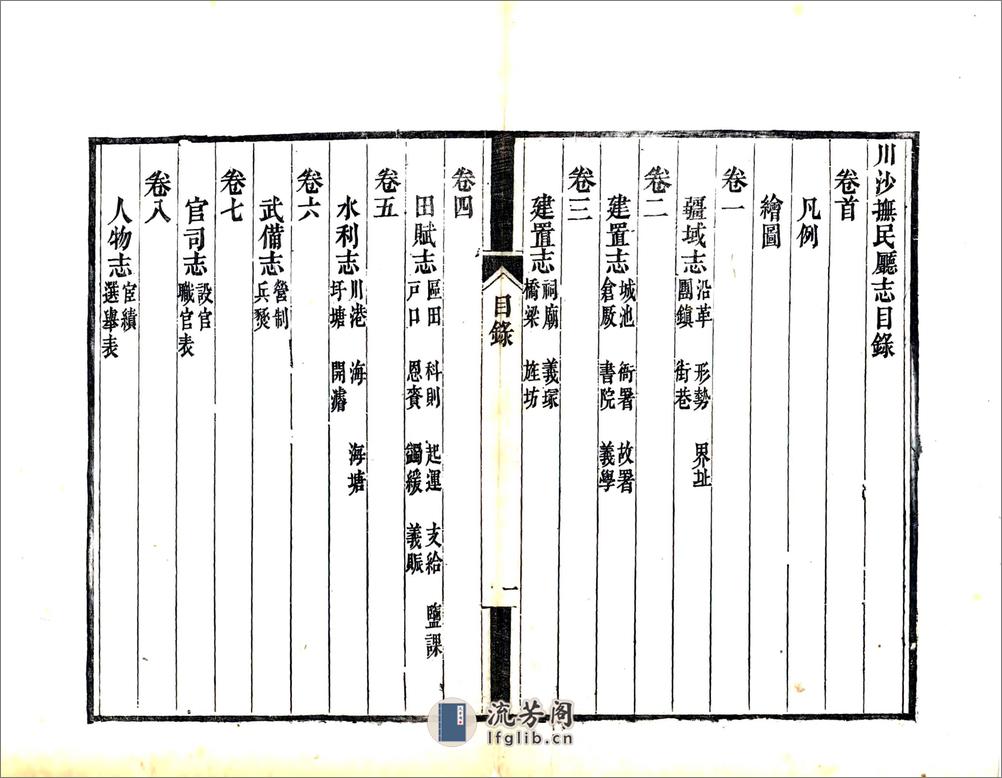 川沙撫民廳志目錄
卷首
凡例
繪圖
卷一
疆域志 沿革 形勢 界址
團鎮 街巷
卷二
建置志 城池 衙署 故署
倉厫 書院 義學
卷三
建置志 祠廟 義塚
橋梁 旌坊
目錄
一
卷四
田賦志 區田 科則 起運 支給 鹽課
戸口 恩賚 蠲緩 義賑
卷五
水利志 川港 海 海塘
圩塘 開濬
卷六
武備志 營制
兵燹
卷七
官司志 設官
職官表
卷八
人物志 宦績
選舉表
流芳阁
lfglib.cn